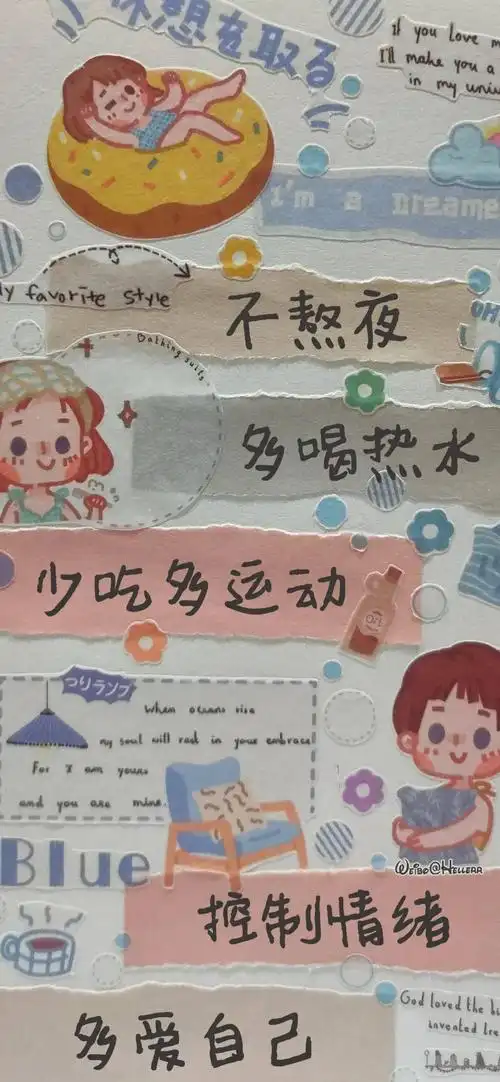 休想を取る
if you love m
I'll make you a
in my univ
I'm a Dreame
My favorite style
不熬夜
OH
Bathing suits
多喝热水
少吃多运动
Oil
つりランプ
When oceans rise
my soul will rest in your embrace
For I am yours
and you are mine.
Blue
Weibo@Hellerr
控制情绪
God loved the bi
invented tre
多爱自己